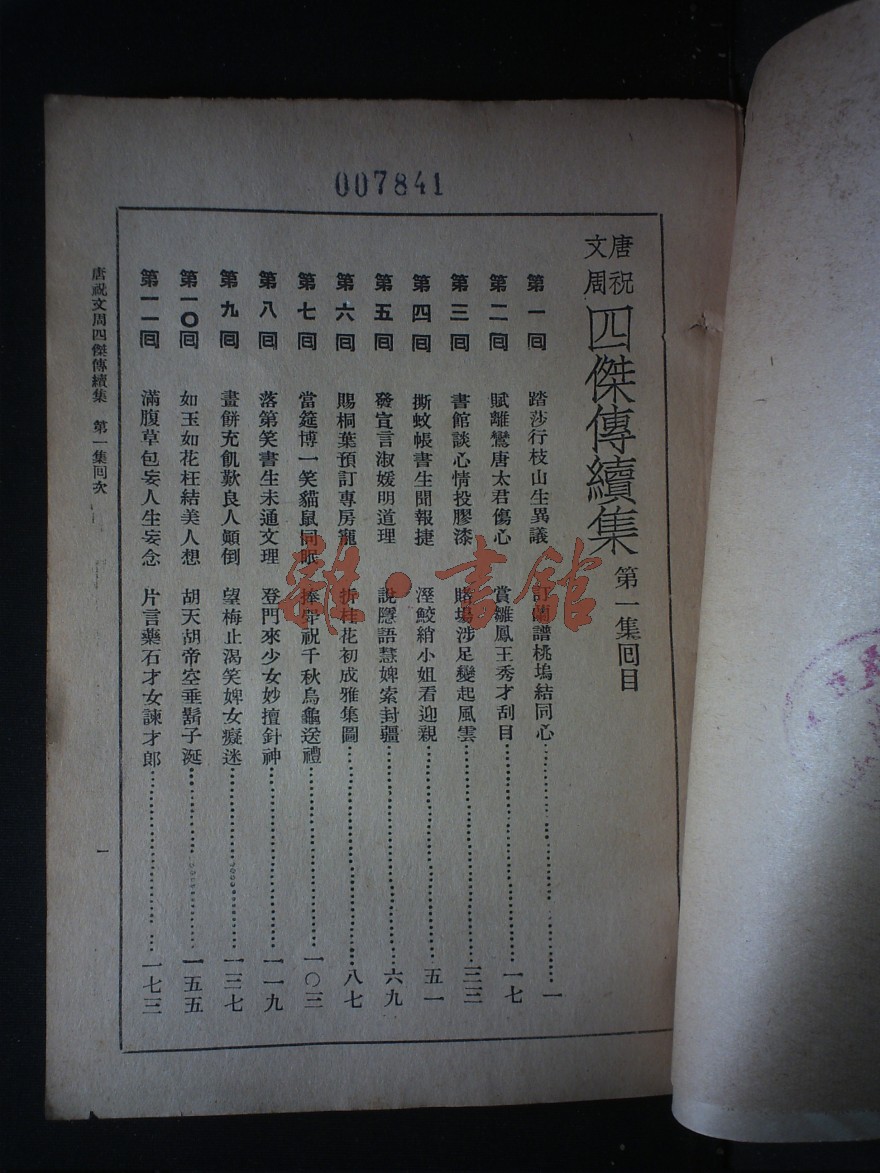 007841
唐祝文周四傑傳續集 第一集回目
第一回 踏莎行枝山生異議 訂蘭譜桃塢結同心 一
第二回 賦離鸞唐太君傷心 賞雛鳳王秀才刮目 一七
第三回 書館談心情投膠漆 賭場涉足變起風雲 三三
第四回 撕蚊帳書生聞報捷 溼鮫綃小姐看迎親 五一
第五回 發宣言淑媛明道理 說隱語慧婢索封疆 六九
第六回 賜桐葉預訂專房寵 折桂花初成雅集圖 八七
第七回 當筵博一笑貓鼠同眠 捧觴祝千秋烏龜送禮 一〇三
第八回 落第笑書生未通文理 登門來少女妙擅針神 一一九
第九回 畫餅充飢歎良人顛倒 望梅止渴笑婢女癡迷 一三七
第一〇回 如玉如花枉結美人想 胡天胡帝空垂鬍子涎 一五五
第一一回 滿腹草包妄人生妄念 片言藥石才女諫才郎 一七三
唐祝文周四傑傳續集 第一集回次
一
雜·書館